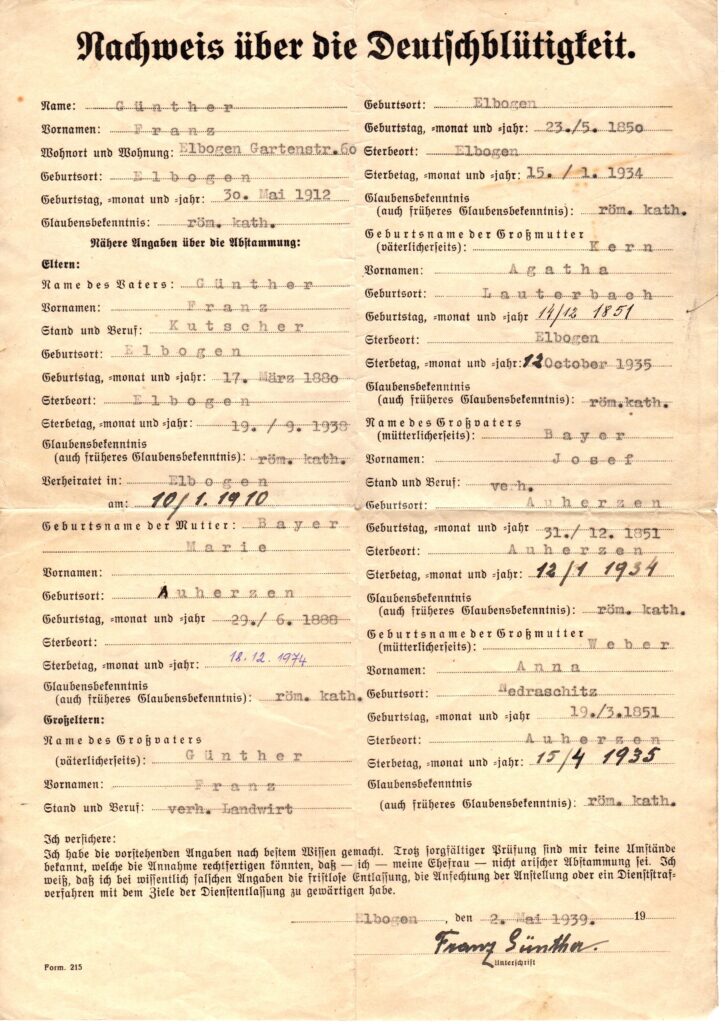 Nachweis über die Deutschblütigkeit.
Name: Günther
Vornamen: Franz
Wohnort und Wohnung: Elbogen Gartenstr.60
Geburtsort: Elbogen
Geburtstag, =monat und =jahr: 30. Mai 1912
Glaubensbekenntnis: röm. kath.
Nähere Angaben über die Abstammung:
Eltern:
Name des Vaters: Günther
Vornamen: Franz
Stand und Beruf: Kutscher
Geburtsort: Elbogen
Geburtstag, =monat und =jahr: 17. März 1880
Sterbeort: Elbogen
Sterbetag, =monat und =jahr: 19. / 9. 1938
Glaubensbekenntnis
(auch früheres Glaubensbekenntnis): röm. kath.
Verheiratet in: Elbogen
am: 10/1. 1910
Geburtsname der Mutter: Bayer
Marie
Vornamen:
Geburtsort: Auherzen
Geburtstag, =monat und =jahr 29./ 6. 1888
Sterbeort:
Sterbetag, =monat und =jahr: 18.12. 1974
Glaubensbekenntnis
(auch früheres Glaubensbekenntnis): röm. kath.
Großeltern:
Name des Großvaters
(väterlicherseits): Günther
Vornamen: Franz
Stand und Beruf: verh. Landwirt
Geburtsort: Elbogen
Geburtstag, =monat und =jahr: 23./5. 1850
Sterbeort: Elbogen
Sterbetag, =monat und =jahr: 15. / 1. 1934
Glaubensbekenntnis
(auch früheres Glaubensbekenntnis): röm. kath.
Geburtsname der Großmutter
(väterlicherseits): Kern
Vornamen: Agatha
Geburtsort: Lauterbach
Geburtstag, =monat und =jahr 14/12 1851
Sterbeort: Elbogen
Sterbetag, =monat und =jahr: 12 October 1935
Glaubensbekenntnis
(auch früheres Glaubensbekenntnis): röm.kath.
Name des Großvaters
(mütterlicherseits): Bayer
Vornamen: Josef
Stand und Beruf: verh.
Geburtsort: Auherzen
Geburtstag, =monat und =jahr 31./ 12. 1851
Sterbeort: Auherzen
Sterbetag, =monat und =jahr: 12/1 1934
Glaubensbekenntnis
(auch früheres Glaubensbekenntnis): röm. kath.
Geburtsname der Großmutter
(mütterlicherseits): Weber
Vornamen: Anna
Geburtsort: Nedraschitz
Geburtstag, =monat und =jahr 19./3.1851
Sterbeort: Auherzen
Sterbetag, =monat und =jahr: 15/4 1935
Glaubensbekenntnis
(auch früheres Glaubensbekenntnis): röm. kath.
Ich versichere:
Ich habe die vorstehenden Angaben nach bestem Wissen gemacht. Trotz sorgfältiger Prüfung sind mir keine Umstände
bekannt, welche die Annahme rechtfertigen könnten, daß — ich — meine Ehefrau — nicht arischer Abstammung sei. Ich
weiß, daß ich bei wissentlich falschen Angaben die fristlose Entlassung, die Anfechtung der Anstellung oder ein Dienststraf-
verfahren mit dem Ziele der Dienstentlassung zu gewärtigen habe.
Elbogen , den 2. Mai 1939. 19
Franz Günther.
Unterschrift
Form. 215